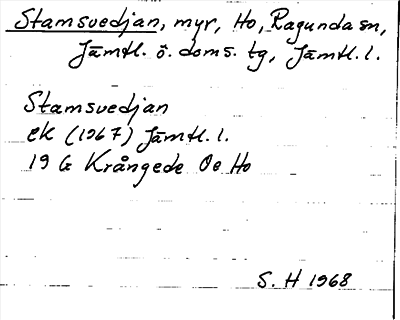 Stamsvedjan, myr, Ho, Ragunda sn,
Jämtl. ö. doms. tg, Jämtl. l.
Stamsvedjan
ek (1967) Jämtl. l.
19 G Krångede Öe Ho
S. H 1968